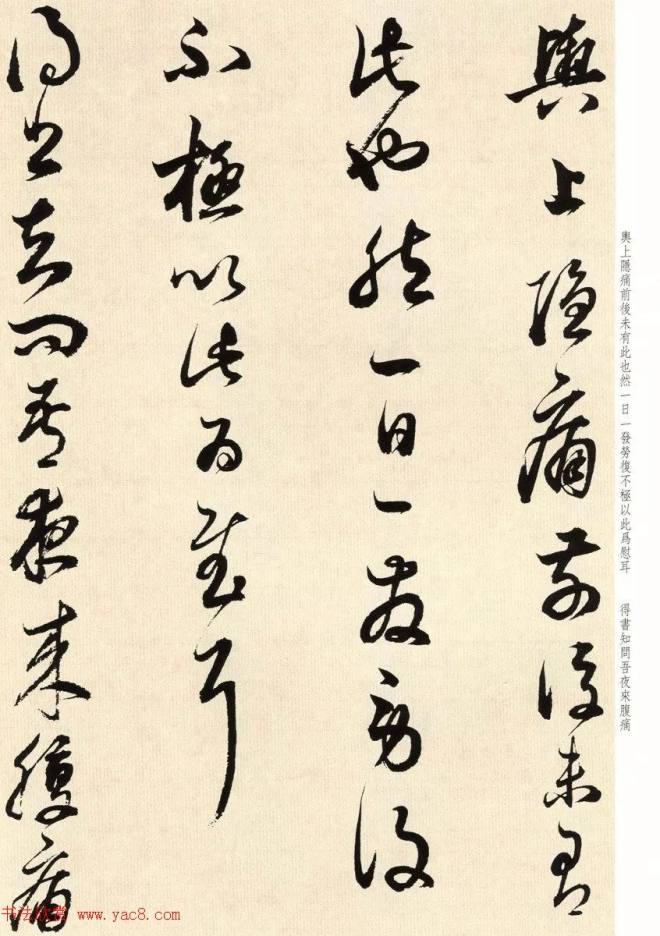 輿上隱痛前後未有
此也然一日一發勞復
不極以此為慰耳
得書知問吾夜來腹痛
輿上隱痛前後未有此也然一日一發勞復不極以此爲慰耳　得書知問吾夜來腹痛
书法欣赏 www.yac8.com